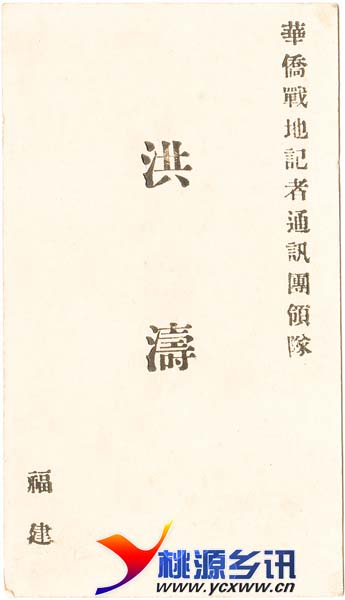 華僑戰地記者通訊團領隊
洪濤
福建
桃源乡讯
www.ycxww.cn